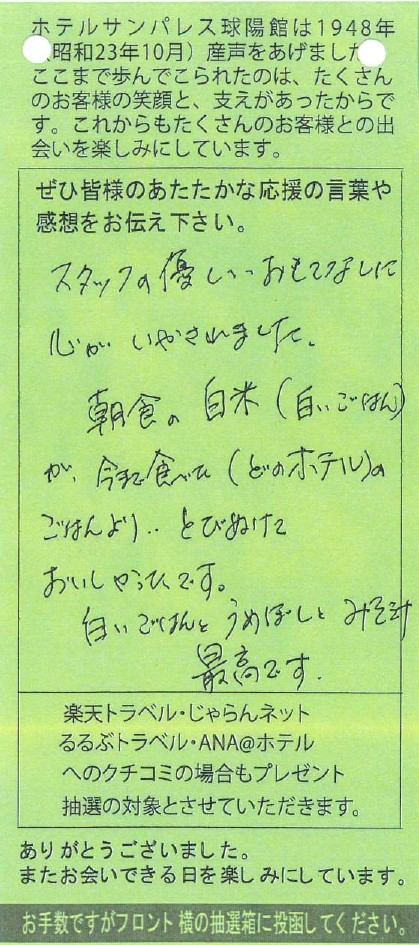 ホテルサンパレス球陽館は1948年
(昭和23年10月）産声をあげました
ここまで歩んでこられたのは、たくさん
のお客様の笑顔と、支えがあったからで
す。これからもたくさんのお客様との出
会いを楽しみにしています。
ぜひ皆様のあたたかな応援の言葉や
感想をお伝え下さい。
スタッフの優しい、おもてなしに
心が いやされました。
朝食の 白米(白いごはん)
が、今まで食べた(どのホテル)の
ごはんより、、とびぬけて
おいしかったです。
白いごはんと うめぼしと みそ汁
最高です.
楽天トラベル・じゃらんネット
るるぶトラベル・ANA@ホテル
へのクチコミの場合もプレゼント
抽選の対象とさせていただきます。
ありがとうございました。
またお会いできる日を楽しみにしています。
お手数ですがフロント横の抽選箱に投函してください。